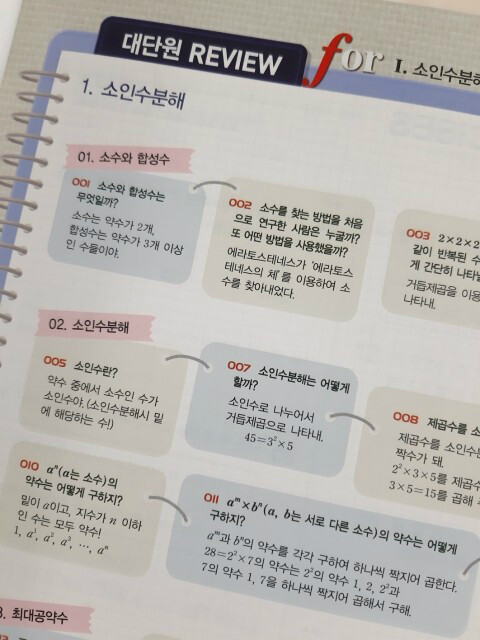 대단원 REVIEW for I. 소인수분해
1. 소인수분해
01. 소수와 합성수
001 소수와 합성수는
무엇일까?
소수는 약수가 2개,
합성수는 약수가 3개 이상
인 수들이야.
002 소수를 찾는 방법을 처음
으로 연구한 사람은 누굴까?
또 어떤 방법을 사용했을까?
에라토스테네스가 '에라토스
테네스의 체'를 이용하여 소
수를 찾아내었다.
003 2×2×2
같이 반복된
게 간단히
거듭제곱을
나타내.
02. 소인수분해
005 소인수란?
약수 중에서 소수인 수가
소인수야. (소인수분해시 밑
에 해당하는 수!)
007 소인수분해는 어떻게
할까?
소인수로 나누어서
거듭제곱으로 나타내.
45=3²×5
008 제곱수를
제곱수를
짝수가 돼.
2²×3×5를
3×5=15를 곱해
010 aⁿ(a는 소수)의
약수는 어떻게 구하지?
밑이 a이고, 지수가 n 이하
인 수는 모두 약수!
1, a¹, a², a³, ⋯, aⁿ
011 aᵐ×bⁿ(a, b는 서로 다른 소수)의 약수는 어떻게
구하지?
aᵐ과 bⁿ의 약수를 각각 구하여 하나씩 짝지어 곱한다.
28=2²×7의 약수는 2²의 약수 1, 2, 2²과
7의 약수 1, 7을 하나씩 짝지어 곱해서 구해.
3. 최대공약수